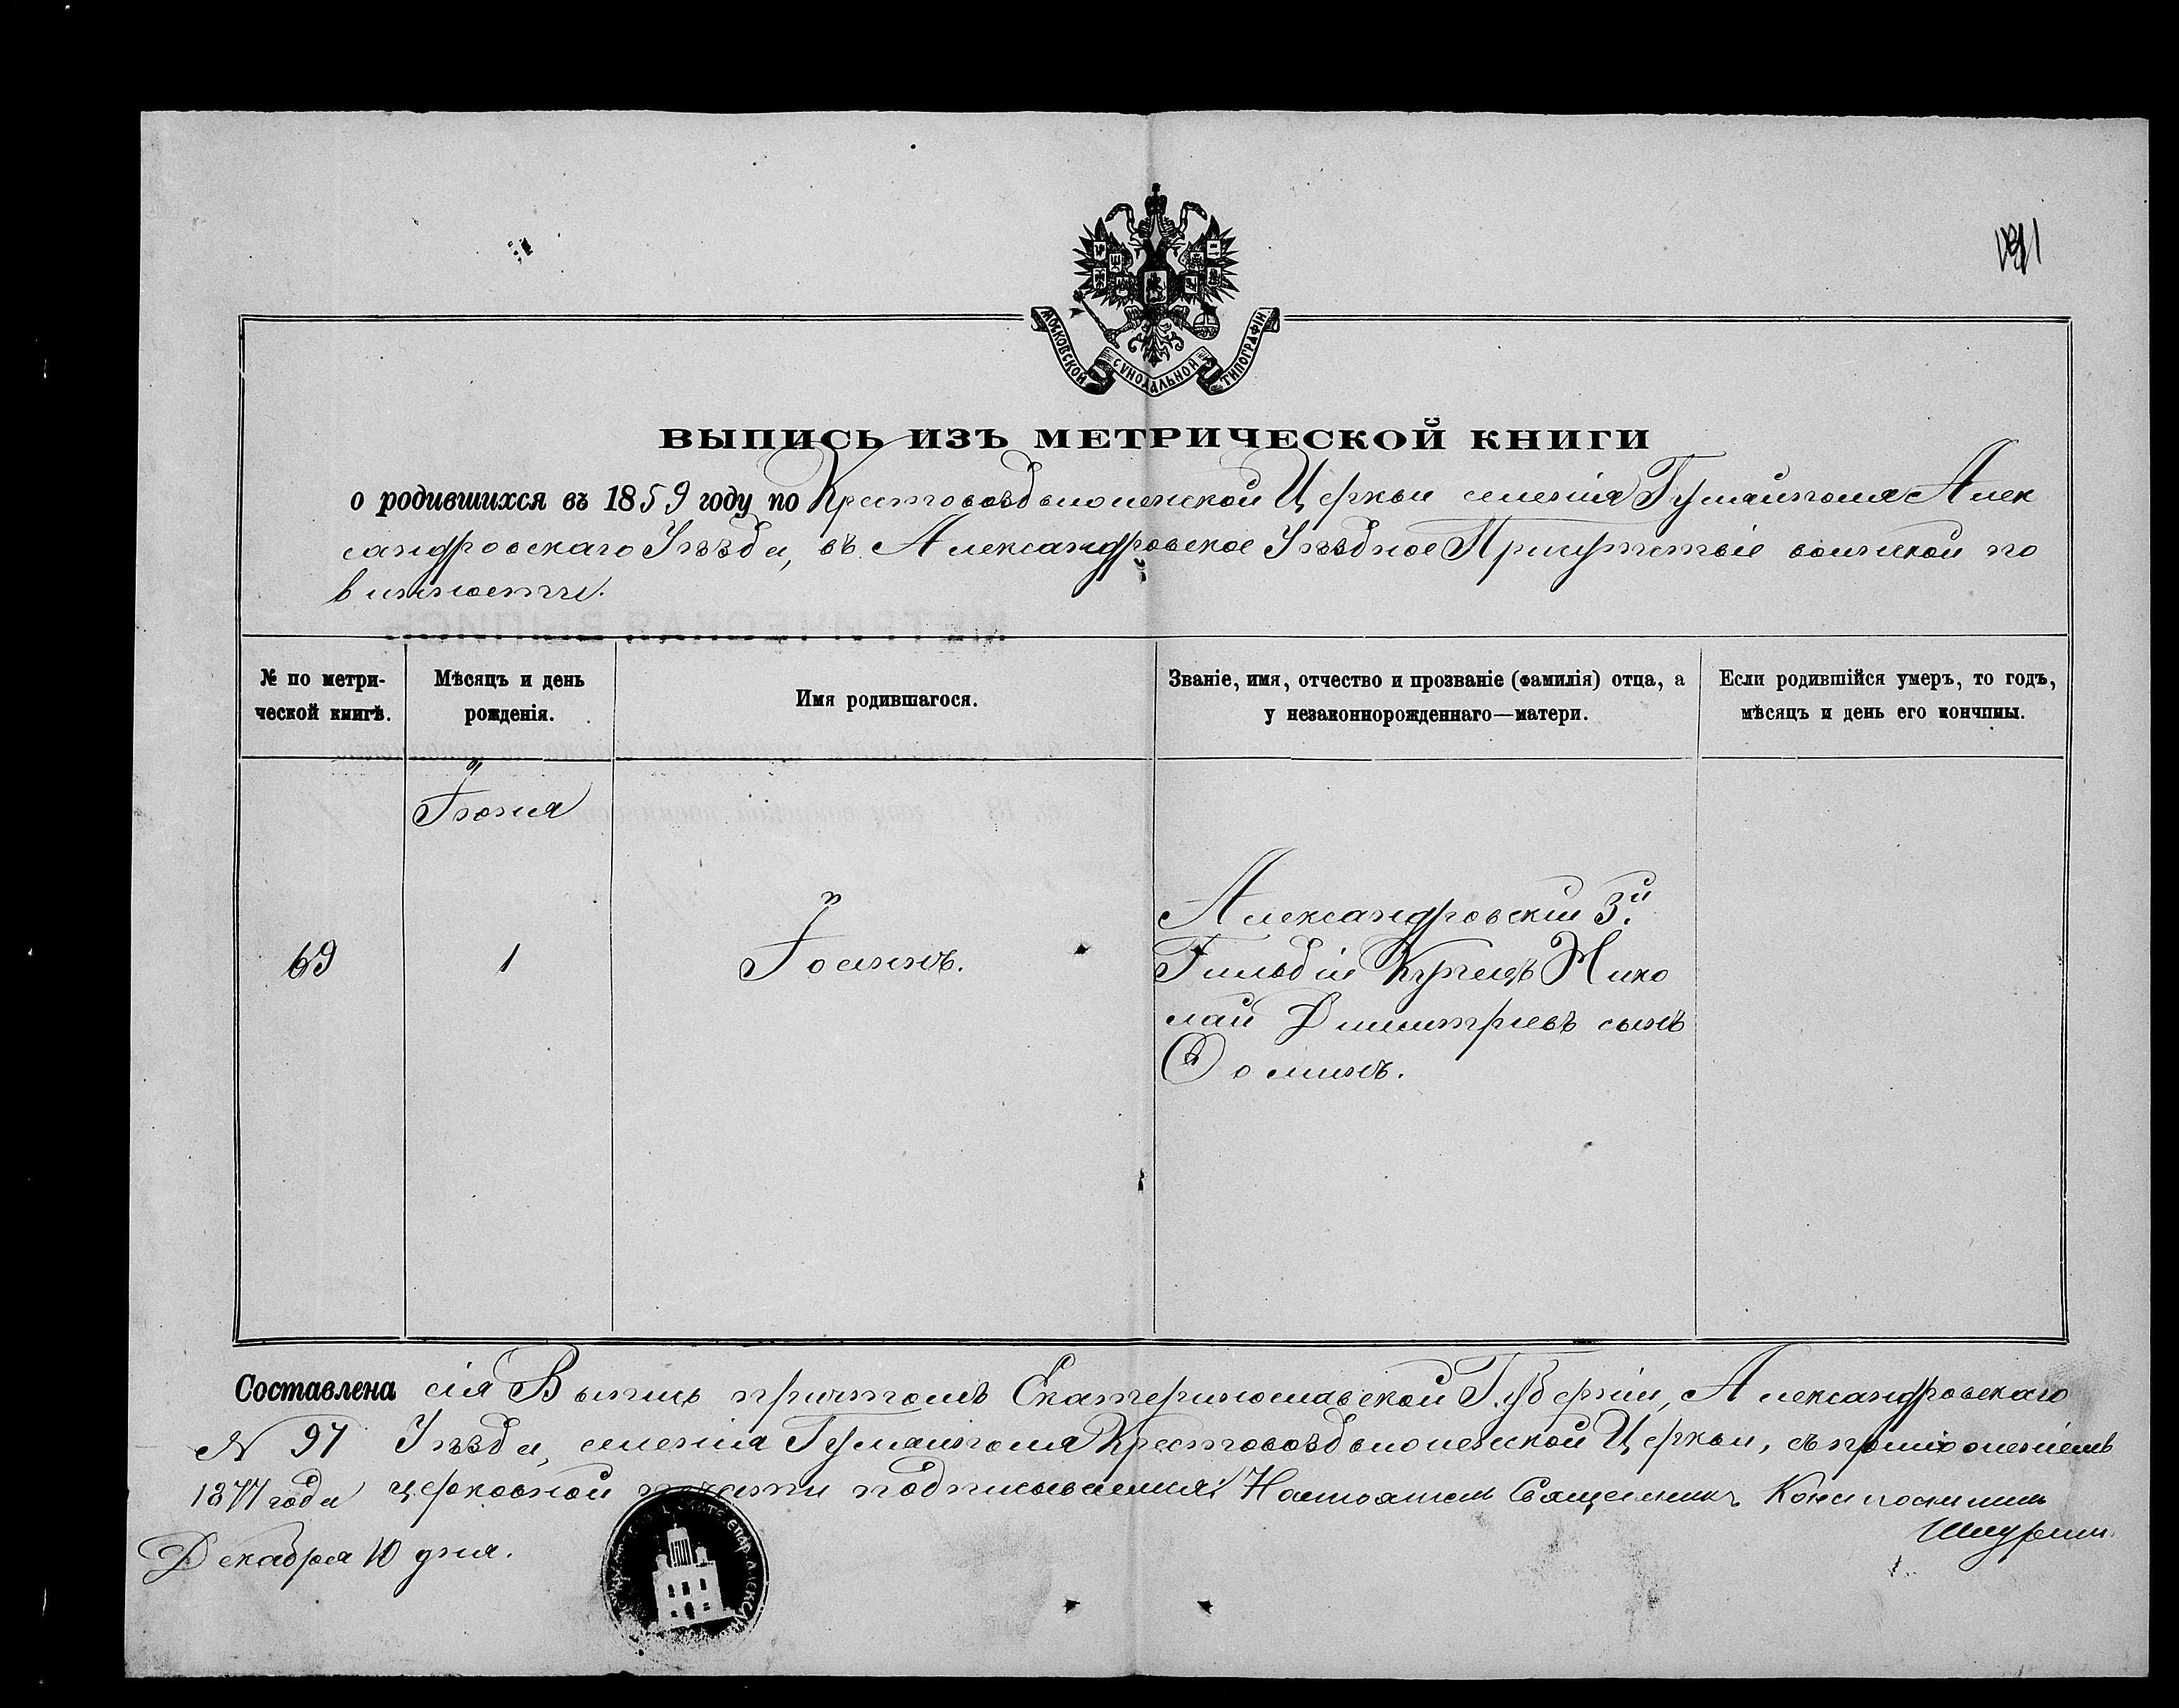 МОСКОВСКОЙ СѴНОДАЛЬНОЙ ТИПОГРАФІИ
ВЫПИСЬ ИЗЪ МЕТРИЧЕСКОЙ КНИГИ
о родившихся въ 1859 году по Крестовоздвиженской Церкви селенія Гуляйполя Алек
сандровскаго Уѣзда, въ Александровское Уѣздное Присутствіе воинской по
винности.
№ по метри-
ческой книгѣ.
Мѣсяцъ и день
рожденія.
Имя родившагося.
Званіе, имя, отчество и прозваніе (фамилія) отца, а
у незаконнорожденнаго—матери.
Если родившійся умеръ, то годъ,
мѣсяцъ и день его кончины.
Іюня
69
1
Іоаннъ.
Александровскій 3й
Гильдіи Купецъ Нико
лай Димитріевъ сынъ
Ѳоминъ.
Составлена сія Выпись причтомъ Екатеринославской Губерніи, Александровскаго
N 97 Уѣзда, селенія Гуляйполя Крестовоздвиженской Церкви, съ приложеніемъ
1877 года церковной печати подписываемся: Настоятель Священникъ Константинъ
Декабря 10 дня.